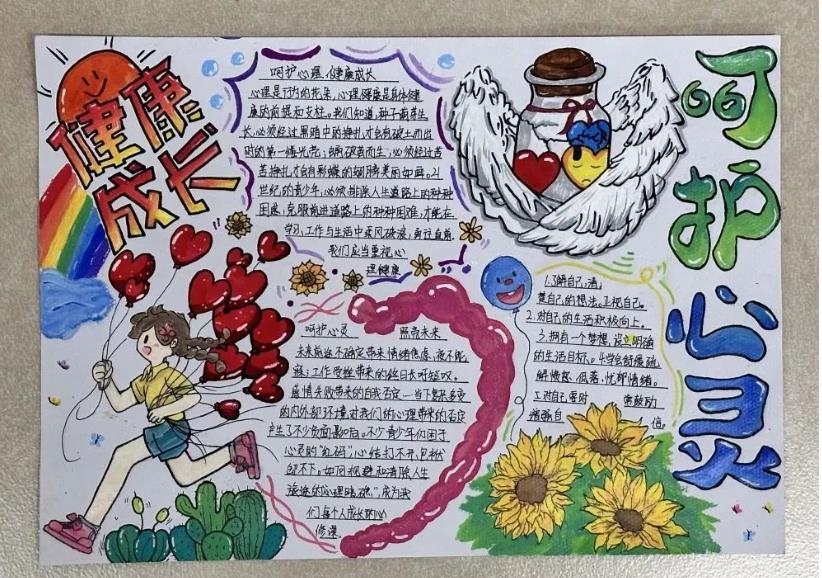 健康
成长
呵护心灵
呵护心理 健康成长
心理是行为的先导,心理健康是身体健
康的前提和支柱。我们知道,种子萌芽生
长,必须经过黑暗中的挣扎才会有破土而出
时的第一缕光亮;蛹破茧而生,必须经过苦
苦挣扎才会有彩蝶的翅膀美丽如画。21
世纪的青少年,必须排除人生道路上的种种
困惑,克服前进道路上的种种困难,才能在
学习、工作与生活中乘风破浪,勇往直前。
我们应当重视心
理健康
呵护心灵 照亮未来
未来前途不确定带来情绪焦虑、夜不能
寐;工作受挫带来的终日长吁短叹。
感情失败带来的自我否定…当下复杂多变
的内外部环境对我们的心理带来的否定
产生了不少负面影响。不少青少年们困于
心灵的“乱码”心结打不开,包袱
卸不下。如何规避和清除人生
旅途的心理暗礁”,成为我
们每个人成长的必
修课。
1.了解自己,清
楚自己的想法。正视自己。
2.对自己的生活积极向上。
3.拥有一个梦想,设立明确
的生活目标。4.学会舒缓疏
解愤怒、低落、忧郁情绪。
5.对自己要时 常鼓励